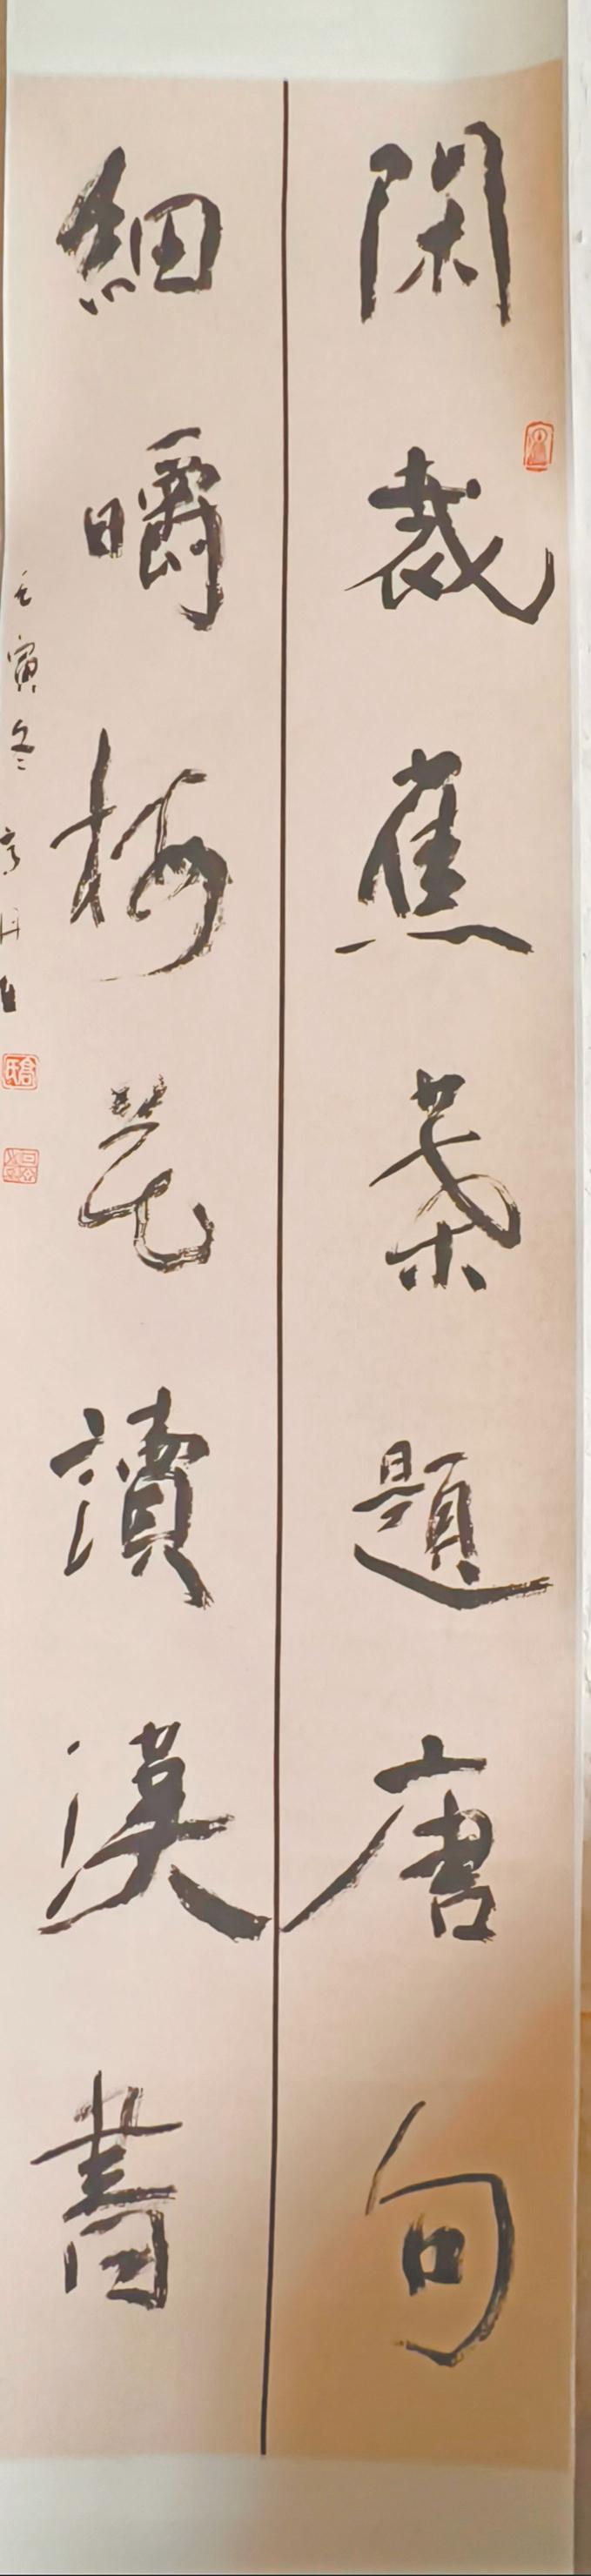 閑裁蕉葉題唐句
細嚼梅花讀漢書
壬寅冬